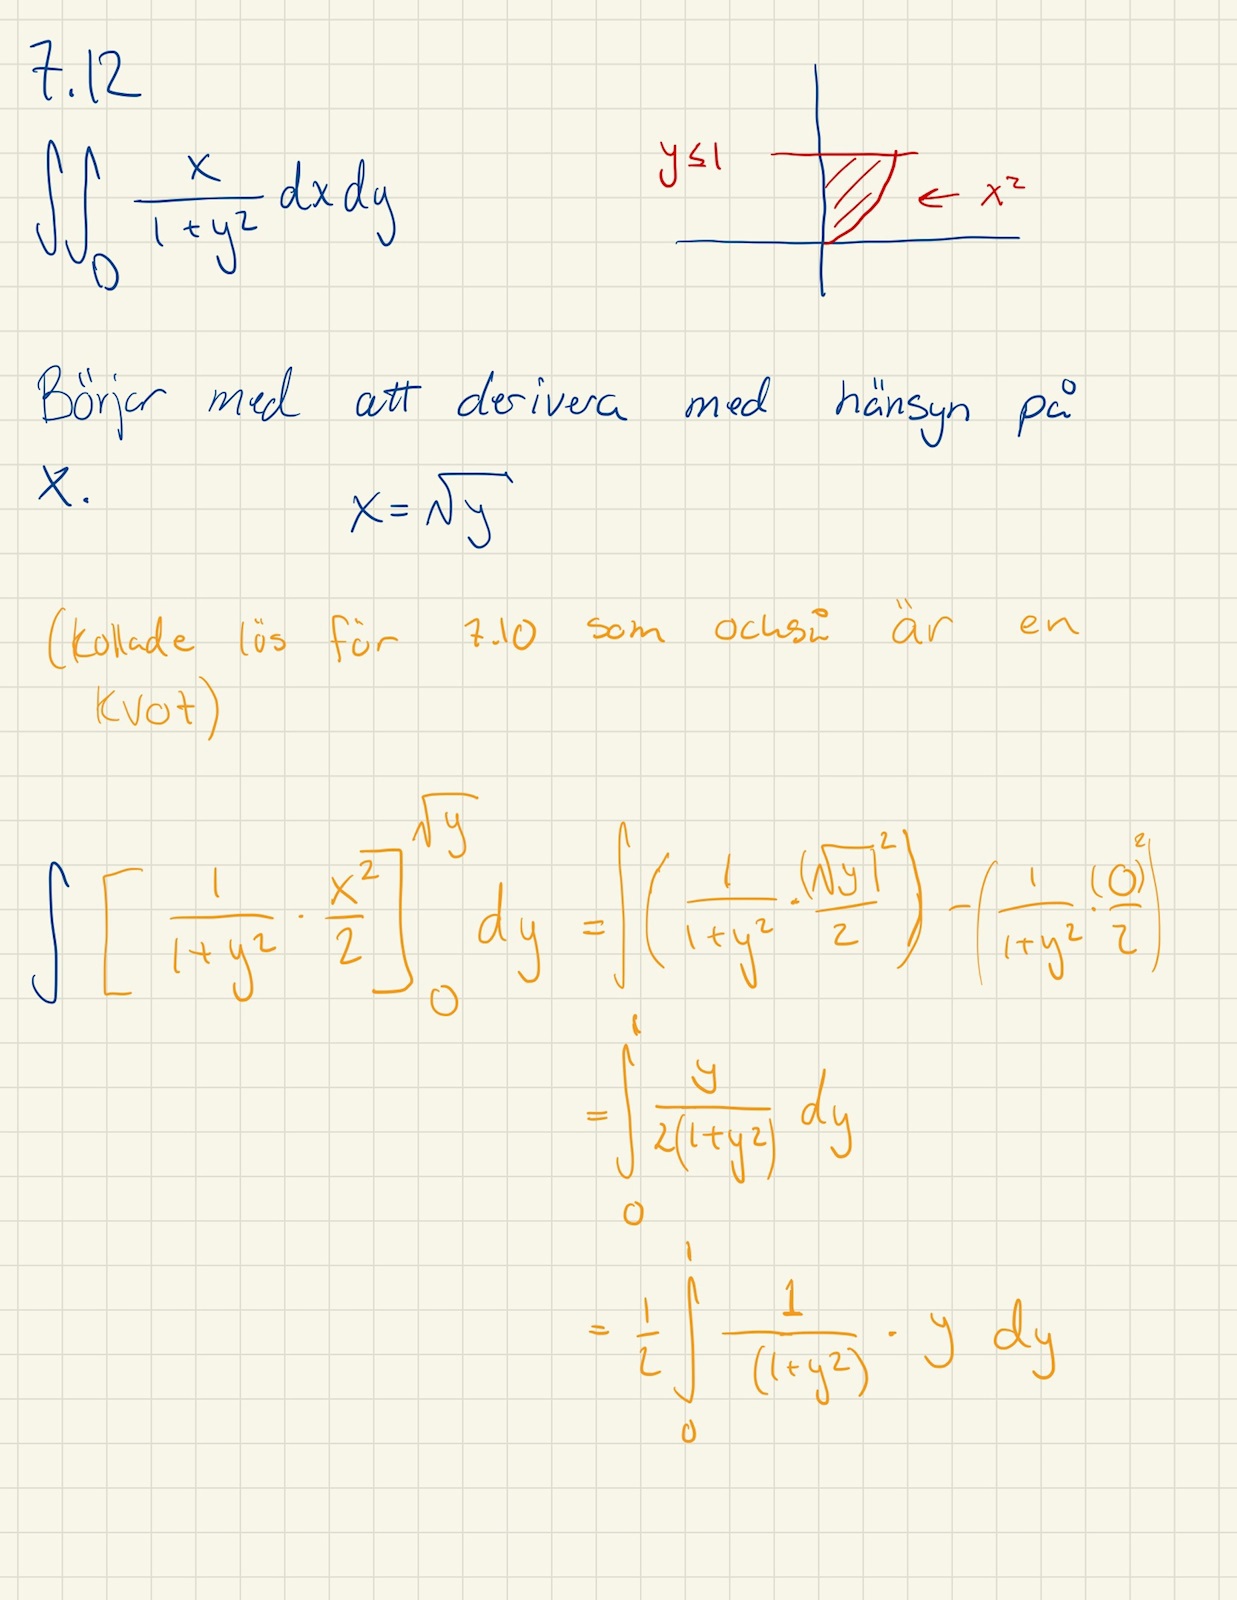 7.12
∫∫_D x/(1+y²) dx dy
y≤1
← x²
Börjar med att derivera med hänsyn på
x. x = √y
(kollade lös för 7.10 som också är en
kvot)
∫ [1/(1+y²) · x²/2]_0^√y dy = ∫ (1/(1+y²) · (√y)²/2) - (1/(1+y²) · (0)²/2)
= ∫_0^1 y/(2(1+y²)) dy
= 1/2 ∫_0^1 1/(1+y²) · y dy